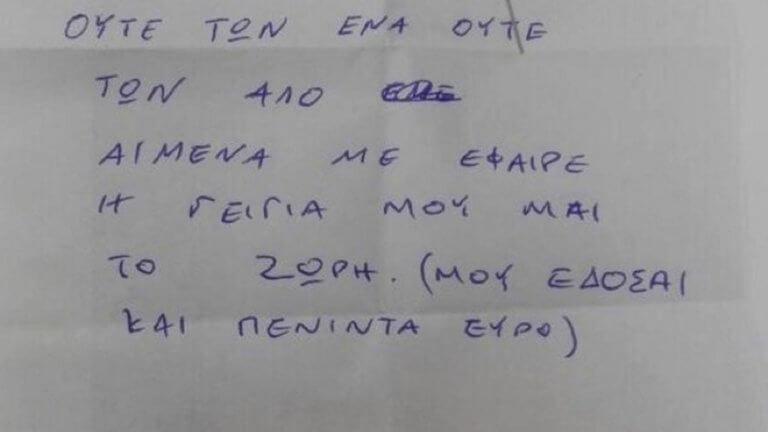 ΟΥΤΕ ΤΩΝ ΕΝΑ ΟΥΤΕ
ΤΩΝ ΑΛΟ
ΑΙΜΕΝΑ ΜΕ ΕΦΑΙΡΕ
Η ΓΕΙΓΙΑ ΜΟΥ ΜΑΙ
ΤΟ ΖΩΡΗ. (ΜΟΥ ΕΔΟΣΑΙ
ΚΑΙ ΠΕΝΙΝΤΑ ΕΥΡΟ)